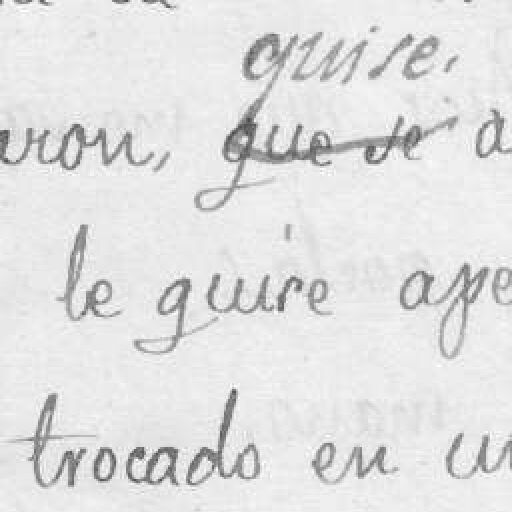 quise.
aron, que se a
le quise ape
trocado en un